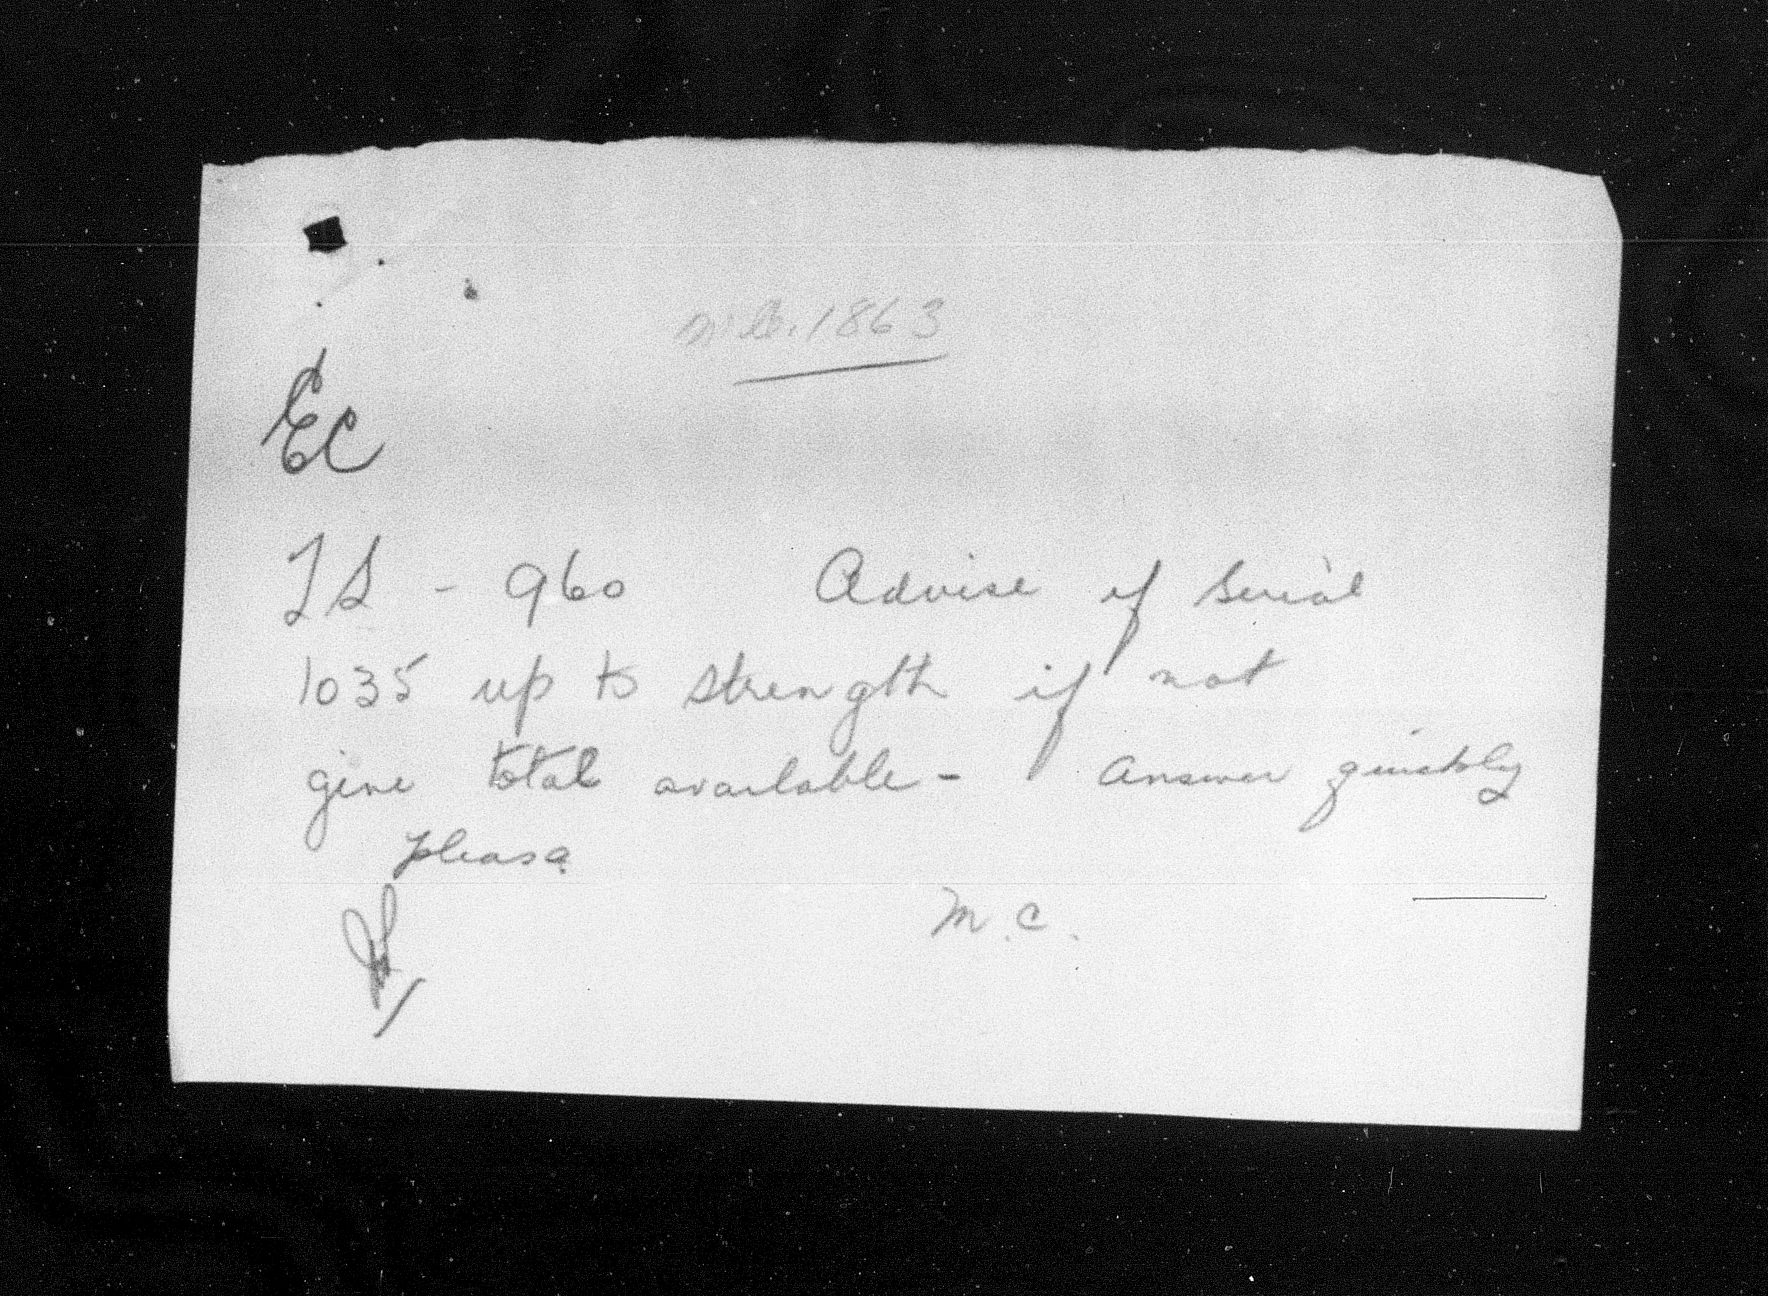 M.C. 1863
EC
TS - 960 Advise if Serial
1035 up to strength if not
give total available - answer quickly
please
M.C.